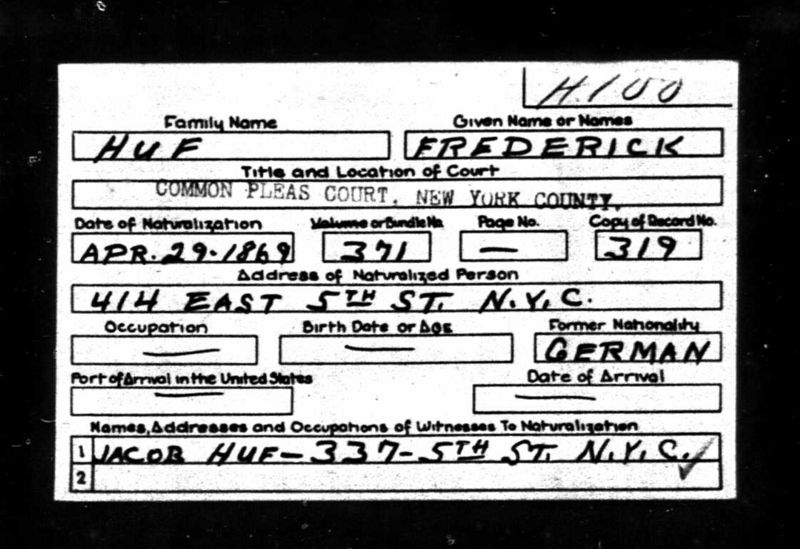 H.100
Family Name Given Name or Names
HUF FREDERICK
Title and Location of Court
COMMON PLEAS COURT, NEW YORK COUNTY.
Date of Naturalization Volume or Bundle No. Page No. Copy of Record No.
APR. 29-1869 371 — 319
Address of Naturalized Person
414 EAST 5TH ST. N.Y.C.
Occupation Birth Date or Age Former Nationality
— — GERMAN
Port of Arrival in the United States Date of Arrival
— —
Names, Addresses and Occupations of Witnesses To Naturalization
1 JACOB HUF - 337 - 5TH ST. N.Y.C. ✓
2